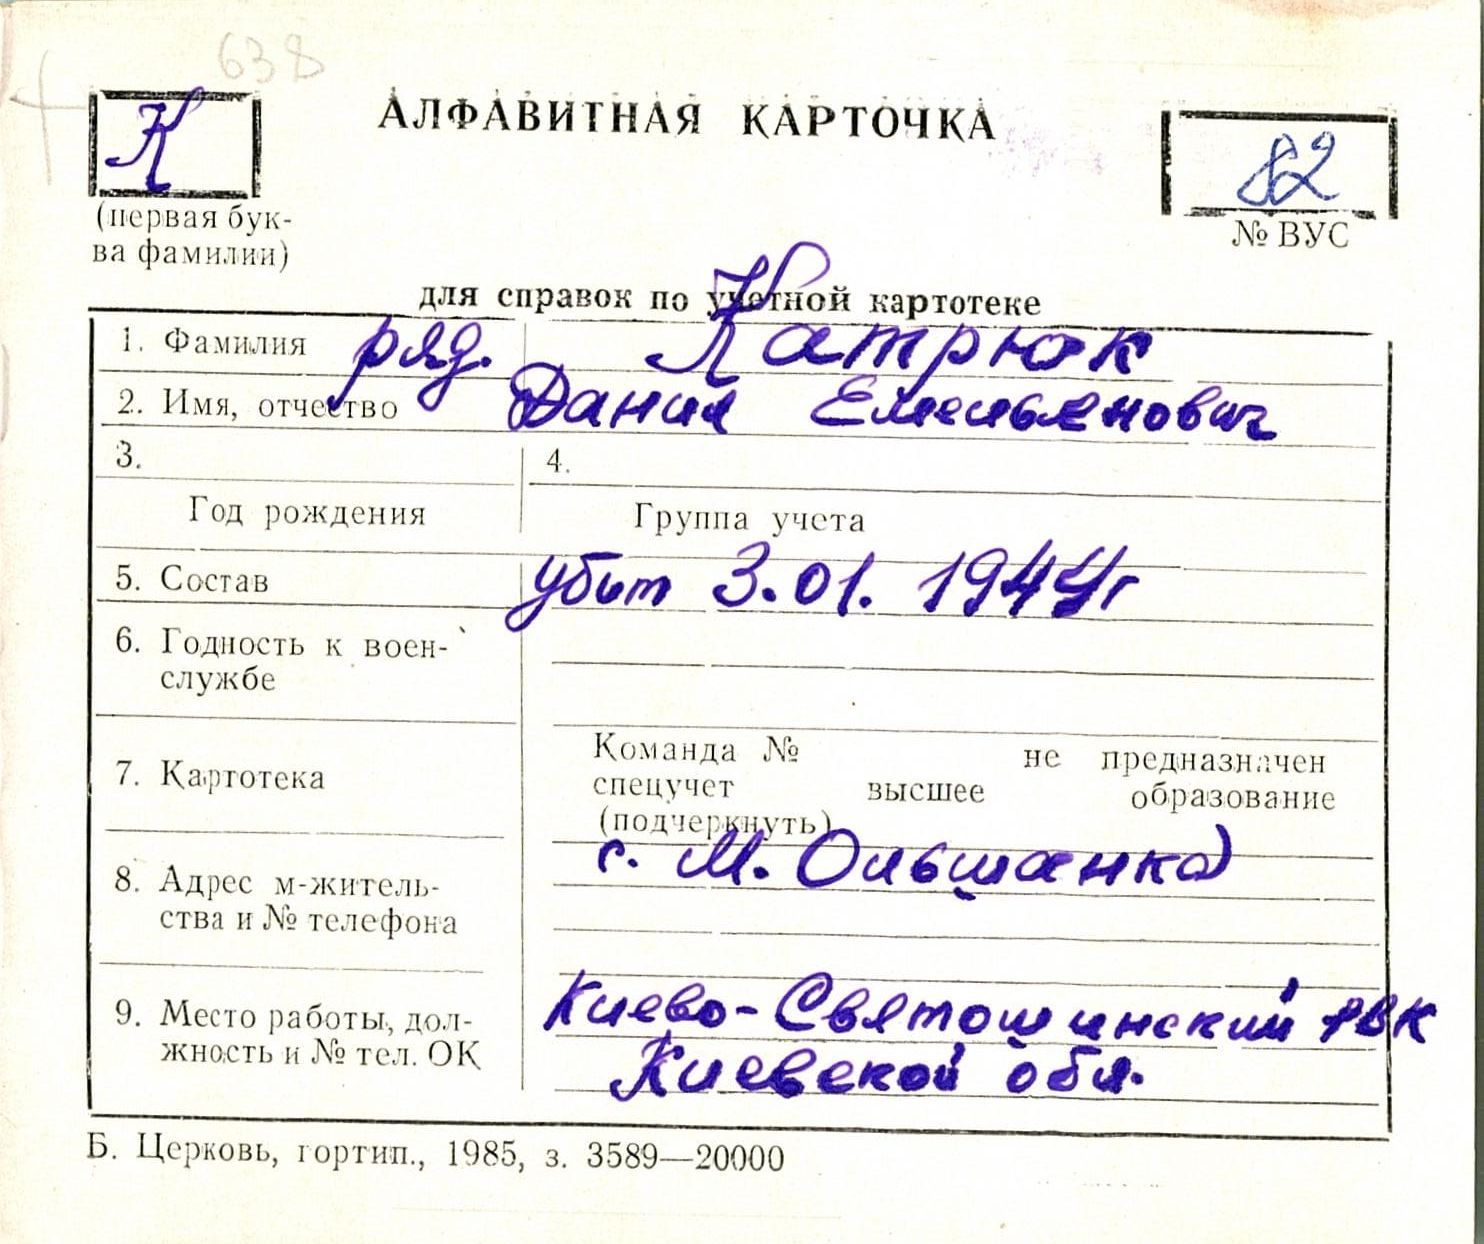 638
АЛФАВИТНАЯ КАРТОЧКА
К
82
(первая бук-
ва фамилии)
№ ВУС
для справок по учетной картотеке
1. Фамилия ряд. Катрюк
2. Имя, отчество Данил Емельянович
3. 4.
Год рождения Группа учета
5. Состав убит 3.01.1944г
6. Годность к воен-
службе
Команда № не предназначен
7. Картотека спецучет высшее образование
(подчеркнуть)
с. М. Ольшанка
8. Адрес м-житель-
ства и № телефона
Киево-Святошинский РВК
9. Место работы, дол-
жность и № тел. ОК
Киевской обл.
Б. Церковь, гортип., 1985, з. 3589—20000